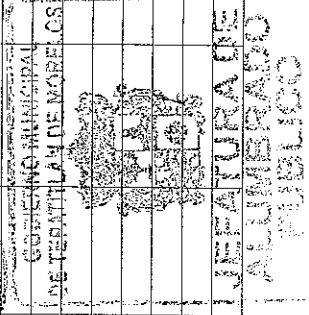 GOBIERNO MUNICIPAL
DE TEPATITLAN DE MORELOS
JEFATURA DE
ALUMBRADO
PUBLICO